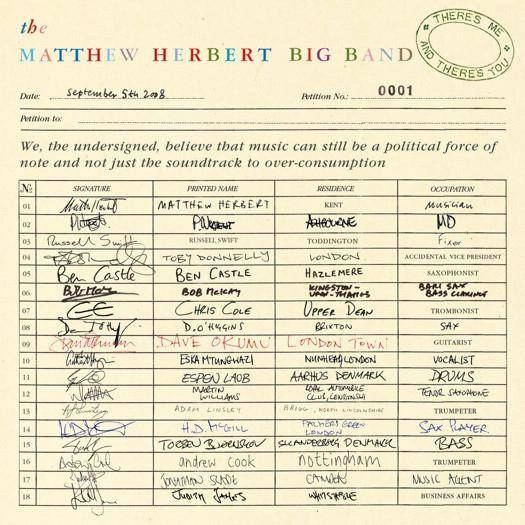 the
MATTHEW HERBERT BIG BAND
THERE'S ME AND THERE'S YOU
Date: September 5th 2008 Petition No.: 0001
Petition to:
We, the undersigned, believe that music can still be a political force of
note and not just the soundtrack to over-consumption
No SIGNATURE PRINTED NAME RESIDENCE OCCUPATION
01 MATTHEW HERBERT KENT Musician
02 ASHBOURNE MD
03 Russell Swift RUSSELL SWIFT TODDINGTON Fixer
04 TOBY DONNELLY LONDON ACCIDENTAL VICE PRESIDENT
05 Ben Castle BEN CASTLE HAZLEMERE SAXOPHONIST
06 BOB McKAY KINGSTON-
UPON-THAMES BARI SAX
BASS CLARINET
07 CHRIS COLE UPPER DEAN TROMBONIST
08 D. O'HIGGINS BRIXTON SAX
09 DAVE OKUMU LONDON TOWN GUITARIST
10 ESKA MTUNGWAZI NUNHEAD, LONDON VOCALIST
11 ESPEN LAUB AARHUS DENMARK DRUMS
12 MARTIN
WILLIAMS AUTOMOBILE
CLUB, LONDON TENOR SAXOPHONE
13 ADAM LINSLEY BRIGG, NORTH LINCOLNSHIRE TRUMPETER
14 H.D. McGILL PALMERS GREEN
LONDON SAX PLAYER
15 TORBEN DENMARK BASS
16 andrew cook nottingham TRUMPETER
17 JONATHAN SLADE CAMDEN MUSIC AGENT
18 JUDITH JAMES WHITSTABLE BUSINESS AFFAIRS